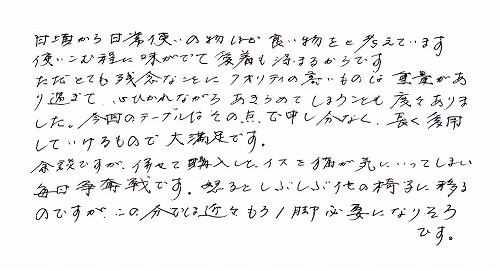 日頃から日常使いの物ほど良い物をと考えています
使いこむ程に味がでて愛着も深まるからです
ただとても残念なことにクオリティの高いものは重量があ
り過ぎて、心ひかれながらあきらめてしまうことも度々ありま
した。今回のテーブルはその点で申し分なく、長く愛用
していけるもので大満足です。
余談ですが、併せて購入したイスを猫が気にいってしまい
毎日争奪戦です。怒るとしぶしぶ他の椅子に移る
のですが、この分では近々もう1脚必要になりそう
です。